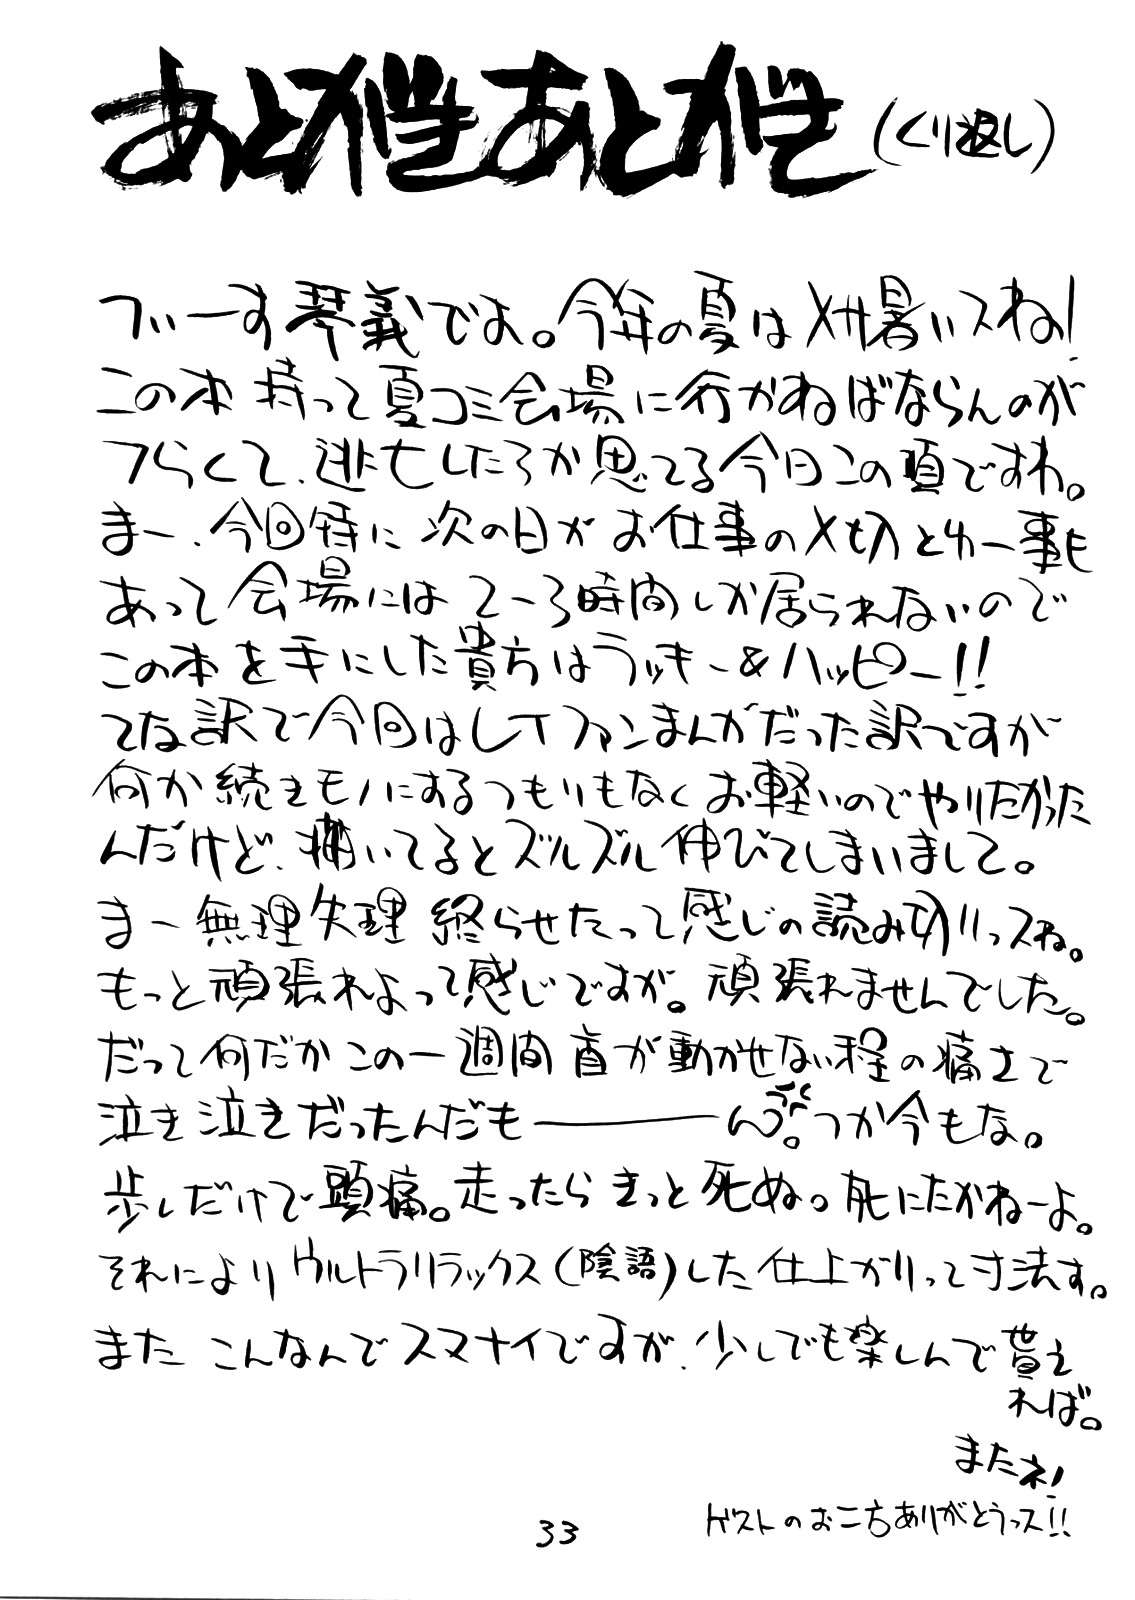 あとがきあとがき(くり返し)
フいーす琴義でよ。今年の夏はメサ暑いスね!
この本持って夏コミ会場に行かねばならんのが
つらくて、逃亡したろか思てる今日この頃ですわ。
まー、今回特に次の日がお仕事の〆切とゆー事も
あって会場には2~3時間しか居られないので
この本を手にした貴方はラッキー&ハッピー!!
てな訳で今回はLTファンまんがだった訳ですが
何か続きモノにするつもりもなくお軽いのでやりたかった
んだけど、描いてるとズルズル伸びてしまいまして。
まー無理矢理終らせたって感じの読み切りっスね。
もっと頑張れよって感じですが。頑張れませんでした。
だって何だかこの一週間首が動かせない程の痛さで
泣き泣きだったんだも――――ん。つか今もな。
歩くだけで頭痛。走ったらきっと死ぬ。死にたかねーよ。
それによりウルトラリラックス(陰語)した仕上がりって寸法す。
またこんなんでスマナイですが、少しでも楽しんで貰え
れば。
またネ!
ゲストのお二方ありがとうっス!!
33